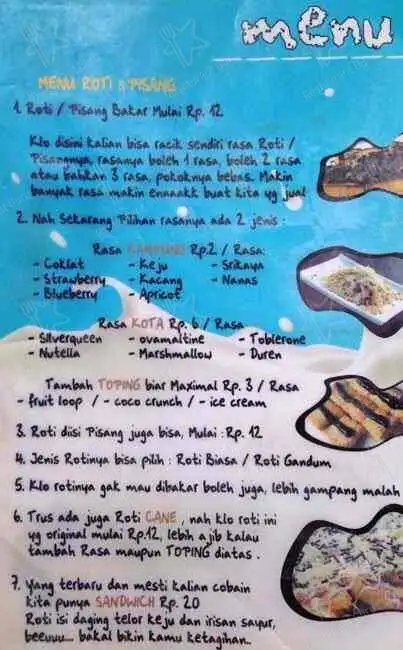 menu
MENU ROTI & PISANG
1. Roti / Pisang Bakar Mulai Rp. 12
Klo disini kalian bisa racik sendiri rasa Roti /
Pisangnya, rasanya boleh 1 rasa, boleh 2 rasa
atau bahkan 3 rasa, pokoknya bebas. Makin
banyak rasa makin enaaakk buat kita yg jual
2. Nah Sekarang Pilihan rasanya ada 2 jenis :
Rasa KAMPUNG Rp.2 / Rasa:
- Coklat - Keju - Srikaya
- Strawberry - Kacang - Nanas
- Blueberry - Apricot
Rasa KOTA Rp. 6 / Rasa
- Silverqueen - ovamaltine - Toblerone
- Nutella - Marshmallow - Duren
Tambah TOPING biar Maximal Rp. 3 / Rasa
- fruit loop / - coco crunch / - ice cream
3. Roti diisi Pisang juga bisa, Mulai : Rp. 12
4. Jenis Rotinya bisa pilih : Roti Biasa / Roti Gandum
5. Klo rotinya gak mau dibakar boleh juga, lebih gampang malah
6. Trus ada juga Roti CANE , nah klo roti ini
yg original mulai Rp.12, lebih ajib kalau
tambah Rasa maupun TOPING diatas .
7. Yang terbaru dan mesti kalian cobain
kita punya SANDWICH Rp. 20
Roti isi daging telor keju dan irisan sayur,
beeuuu... bakal bikin kamu ketagihan..